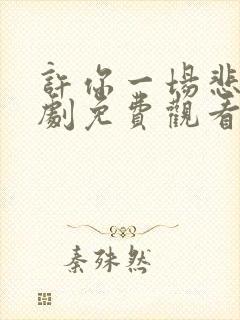 許你一場悲
劇免費觀看
秦殊然